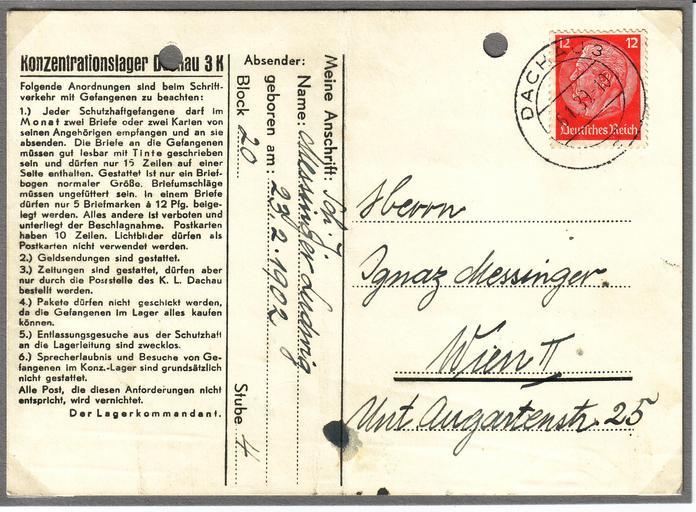 Konzentrationslager Dachau 3 K
Folgende Anordnungen sind beim Schrift-
verkehr mit Gefangenen zu beachten:
1.) Jeder Schutzhaftgefangene darf im
Monat zwei Briefe oder zwei Karten von
seinen Angehörigen empfangen und an sie
absenden. Die Briefe an die Gefangenen
müssen gut lesbar mit Tinte geschrieben
sein und dürfen nur 15 Zeilen auf einer
Seite enthalten. Gestattet ist nur ein Brief-
bogen normaler Größe. Briefumschläge
müssen ungefüttert sein. In einem Briefe
dürfen nur 5 Briefmarken à 12 Pfg. beige-
legt werden. Alles andere ist verboten und
unterliegt der Beschlagnahme. Postkarten
haben 10 Zeilen. Lichtbilder dürfen als
Postkarten nicht verwendet werden.
2.) Geldsendungen sind gestattet.
3.) Zeitungen sind gestattet, dürfen aber
nur durch die Poststelle des K. L. Dachau
bestellt werden.
4.) Pakete dürfen nicht geschickt werden,
da die Gefangenen im Lager alles kaufen
können.
5.) Entlassungsgesuche aus der Schutzhaft
an die Lagerleitung sind zwecklos.
6.) Sprecherlaubnis und Besuche von Ge-
fangenen im Konz.-Lager sind grundsätzlich
nicht gestattet.
Alle Post, die diesen Anforderungen nicht
entspricht, wird vernichtet.
Der Lagerkommandant.
Absender:
Meine Anschrift: Sch. J.
Name: Messinger Ludwig
geboren am: 23.2.1902
Block 20 Stube 4
DACHAU 3
12 12
Deutsches Reich
Herrn
Ignaz Messinger
Wien II
Unt. Augartenstr. 25